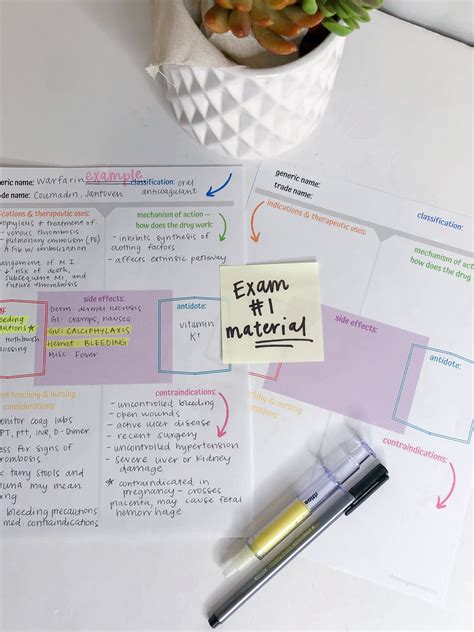 generic name: warfarin example classification: oral anticoagulant
trade name: Coumadin, Jantoven
indications & therapeutic uses:
prophylaxis & treatment of
- venous thrombosis
- pulmonary embolism (PE)
A Fib w/ embolization
management of M.I.
↓ risk of death,
subsequent MI, and
future thrombosis
mechanism of action –
how does the drug work:
- inhibits synthesis of
clotting factors
- affects extrinsic pathway
bleeding
precautions*
toothbush
flossing
side effects:
Derm: dermal necrosis
GI: cramps, nausea
GU: CALCIPHYLAXIS
Hemat: BLEEDING
Misc: Fever
antidote:
vitamin
K+
patient teaching & nursing
considerations:
monitor coag labs
PT, PTT, INR, D-Dimer
assess for signs of
thrombosis
* tarry stools and
may mean
bleeding
* bleeding precautions
med. contraindications
contraindications:
- uncontrolled bleeding
- open wounds
- active ulcer disease
- recent surgery
- uncontrolled hypertension
- severe liver or kidney
damage
* contraindicated in
pregnancy - crosses
placenta, may cause fetal
hemorrhage
Exam
#1
material
generic name:
trade name:
classification:
indications & therapeutic uses:
mechanism of action –
how does the drug
side effects:
antidote:
teaching & nursing
considerations:
contraindications: